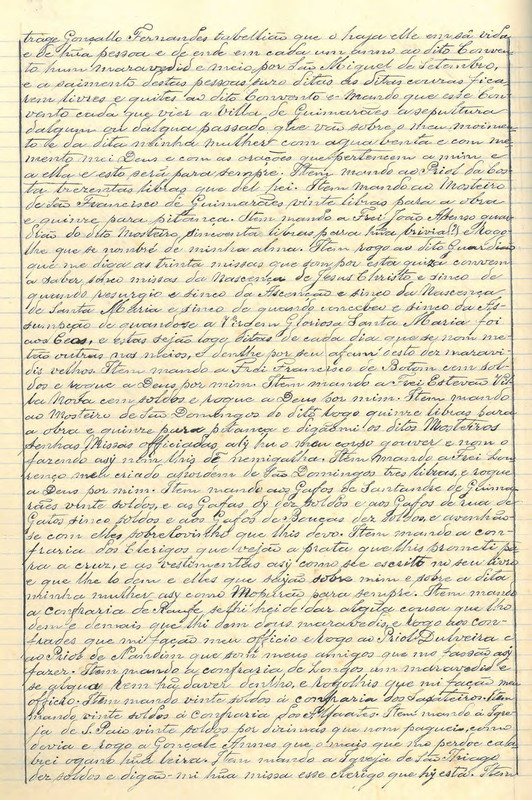 trago Gonçallo Fernandes tabellião que o haja elle em sâ vida
e de hũa pessoa e de ende em cada um anno ao dito Conven-
to hum maravedid e meio por São Miguel de Setembro,
e a saimento destas pessoas suso ditas as ditas couras fica-
rem livres e quites ao dito Convento e Mando que esse Con-
vento cada que vier a Villa de Guimarães a sepultura
dalgum ou dalgua passado que vão sobre o meu moimen-
to e da dita minha mulher com agua benta e com me-
mento mei Deus e com as orações que pertencem a mim e
a ella e esto será para sempre. Item mando ao Priol da Cos-
ta trezentas libras que del frei. Item mando ao Mosteiro
de São Francisco de Guimarães vinte libras para a obra
e quinze para pitança. Item mando a Frei João Afonso guar-
dião do dito Mosteiro, sincoenta libras para hũa trivia(?) Rogo-
lhe que se nombre de minha alma. Item rogo ao dito Guardião
que me diga as trinta missas que som por esta guiza convem
a saber sinco missas da Nascença de Jesus Christo e sinco de
quando resurgio e sinco da Ascenção e sinco da Nascença
de Santa Maria e sinco de quando concebeu e sinco da As-
sumpção de quandose a Virdem Gloriosa Santa Maria foi
aos Ceos, e estas sejão logo ditas de cada dia que se nom me-
tão outras nos meios, e denlhe por seu afam esto dez maravi-
dis velhos. Item mando a Frei Francisco de Botom cem sol-
dos e rogue a Deus por mim. Item mando a Frei Estevão Vil-
la Nova cem soldos e rogue a Deus por mim. Item mando
ao Mosteiro de São Domingos do dito logo quinze libras para
a obra e quinze para pitança e digãomi os ditos Mosteiros
senhas Missas officiadas, aly hu o meu corpo jouver e nom o
fazendo asy nem lhis de nemigalha. Item mando a Frei Lou-
renço meu criado da ordem de São Domingos tres libras, e rogue
a Deus por mim. Item mando aos Gafos de Santandre de Guima-
rães vinte soldos, e as Gafas dy dez soldos e aos Gafos de rua de
Gatos sinco soldos e aos Gafos de Bouças dez soldos, e avenhão-
se com elles sobre lovinho que lhis devo. Item mando a con-
fraria dos Clerigos que vejão a prata que lhis prometi pe-
ra a cruz, e as vestimentas asy como she escrito no seu livro
e que lhe lo dem e elles que saijão sobre mim e sobre a dita
minha mulher asy como Mopurão para sempre. Item mando
a confraria de Roufe, se lhi hei de dar alguã cousa que lho
dem e demais que lhi dem dous maravedis, e rogo aos con-
frades que mi fação meu officio e rogo ao Priol Dulveira e
ao Priol de Nandim que som meus amigos que mo fassão asy
fazer. Item mando a confraria de Longos um maravedid e
se algua rem hã daver denlho, e rogolhis que mi fação meu
officio. Item mando vinte soldos á confraria dos Sapateiros. Item
mando vinte soldos á confraria dos Alfaiates. Item mando á Igre-
ja de S. Paio vinte soldos por dizimas que nom paguei, como
devia e rogo a Gonçale Annes que o mais que mo perdoe ca lo-
brei ogano hũa leira. Item mando a Igreja de São Thiago
dez soldos e digão-mi hũa missa esse clerigo que hy está. Item